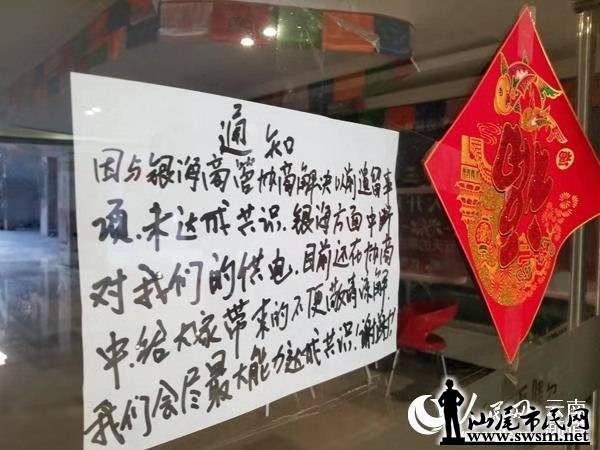 通知
因与银海商管协商解决以前遗留事
项.未达成共识.银海方面中断
对我们的供电.目前还在协商
中.给大家带来的不便敬请谅解.
我们会尽最大能力达成共识.谢谢!
福
汕尾市民网
www.swsm.net
云南